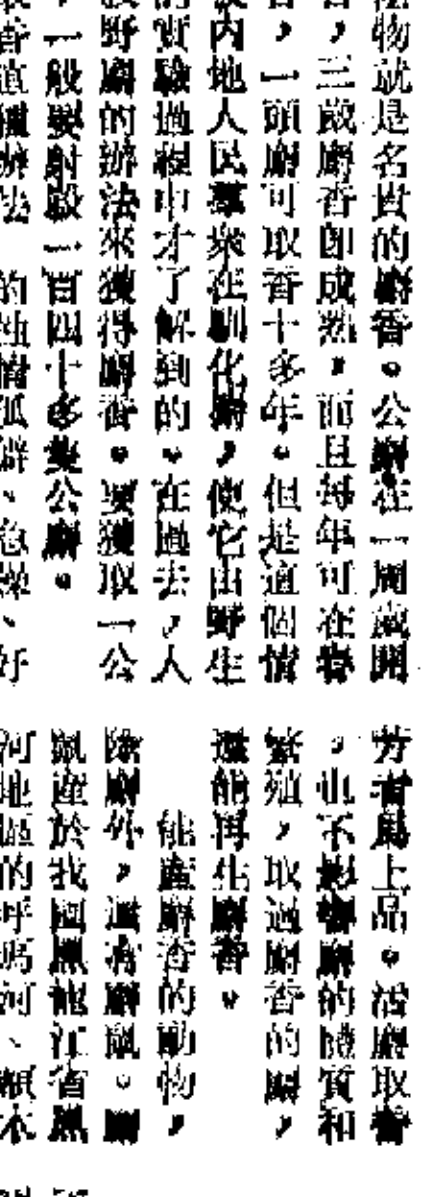 物就是名貴的麝香。公麝在一周歲開
，三歲麝香即成熟，而且每年可在春
，一頭麝可取香十多年。但是這個情
內地人民羣衆在馴化麝，使它由野生
實驗過程中才了解到的。在過去，人
野麝的辦法來獲得麝香。要獲取一公
一般要射殺一百四十多隻公麝。
香直 辦法 的性情孤僻、急躁、好
芳者爲上品。活麝取香
，也不影響麝的體質和
繁殖，取過麝香的麝，
還能再生麝香。
能產麝香的動物，
除麝外，還有麝鼠。麝
鼠產於我國黑龍江省黑
河地區的呼瑪河、額木